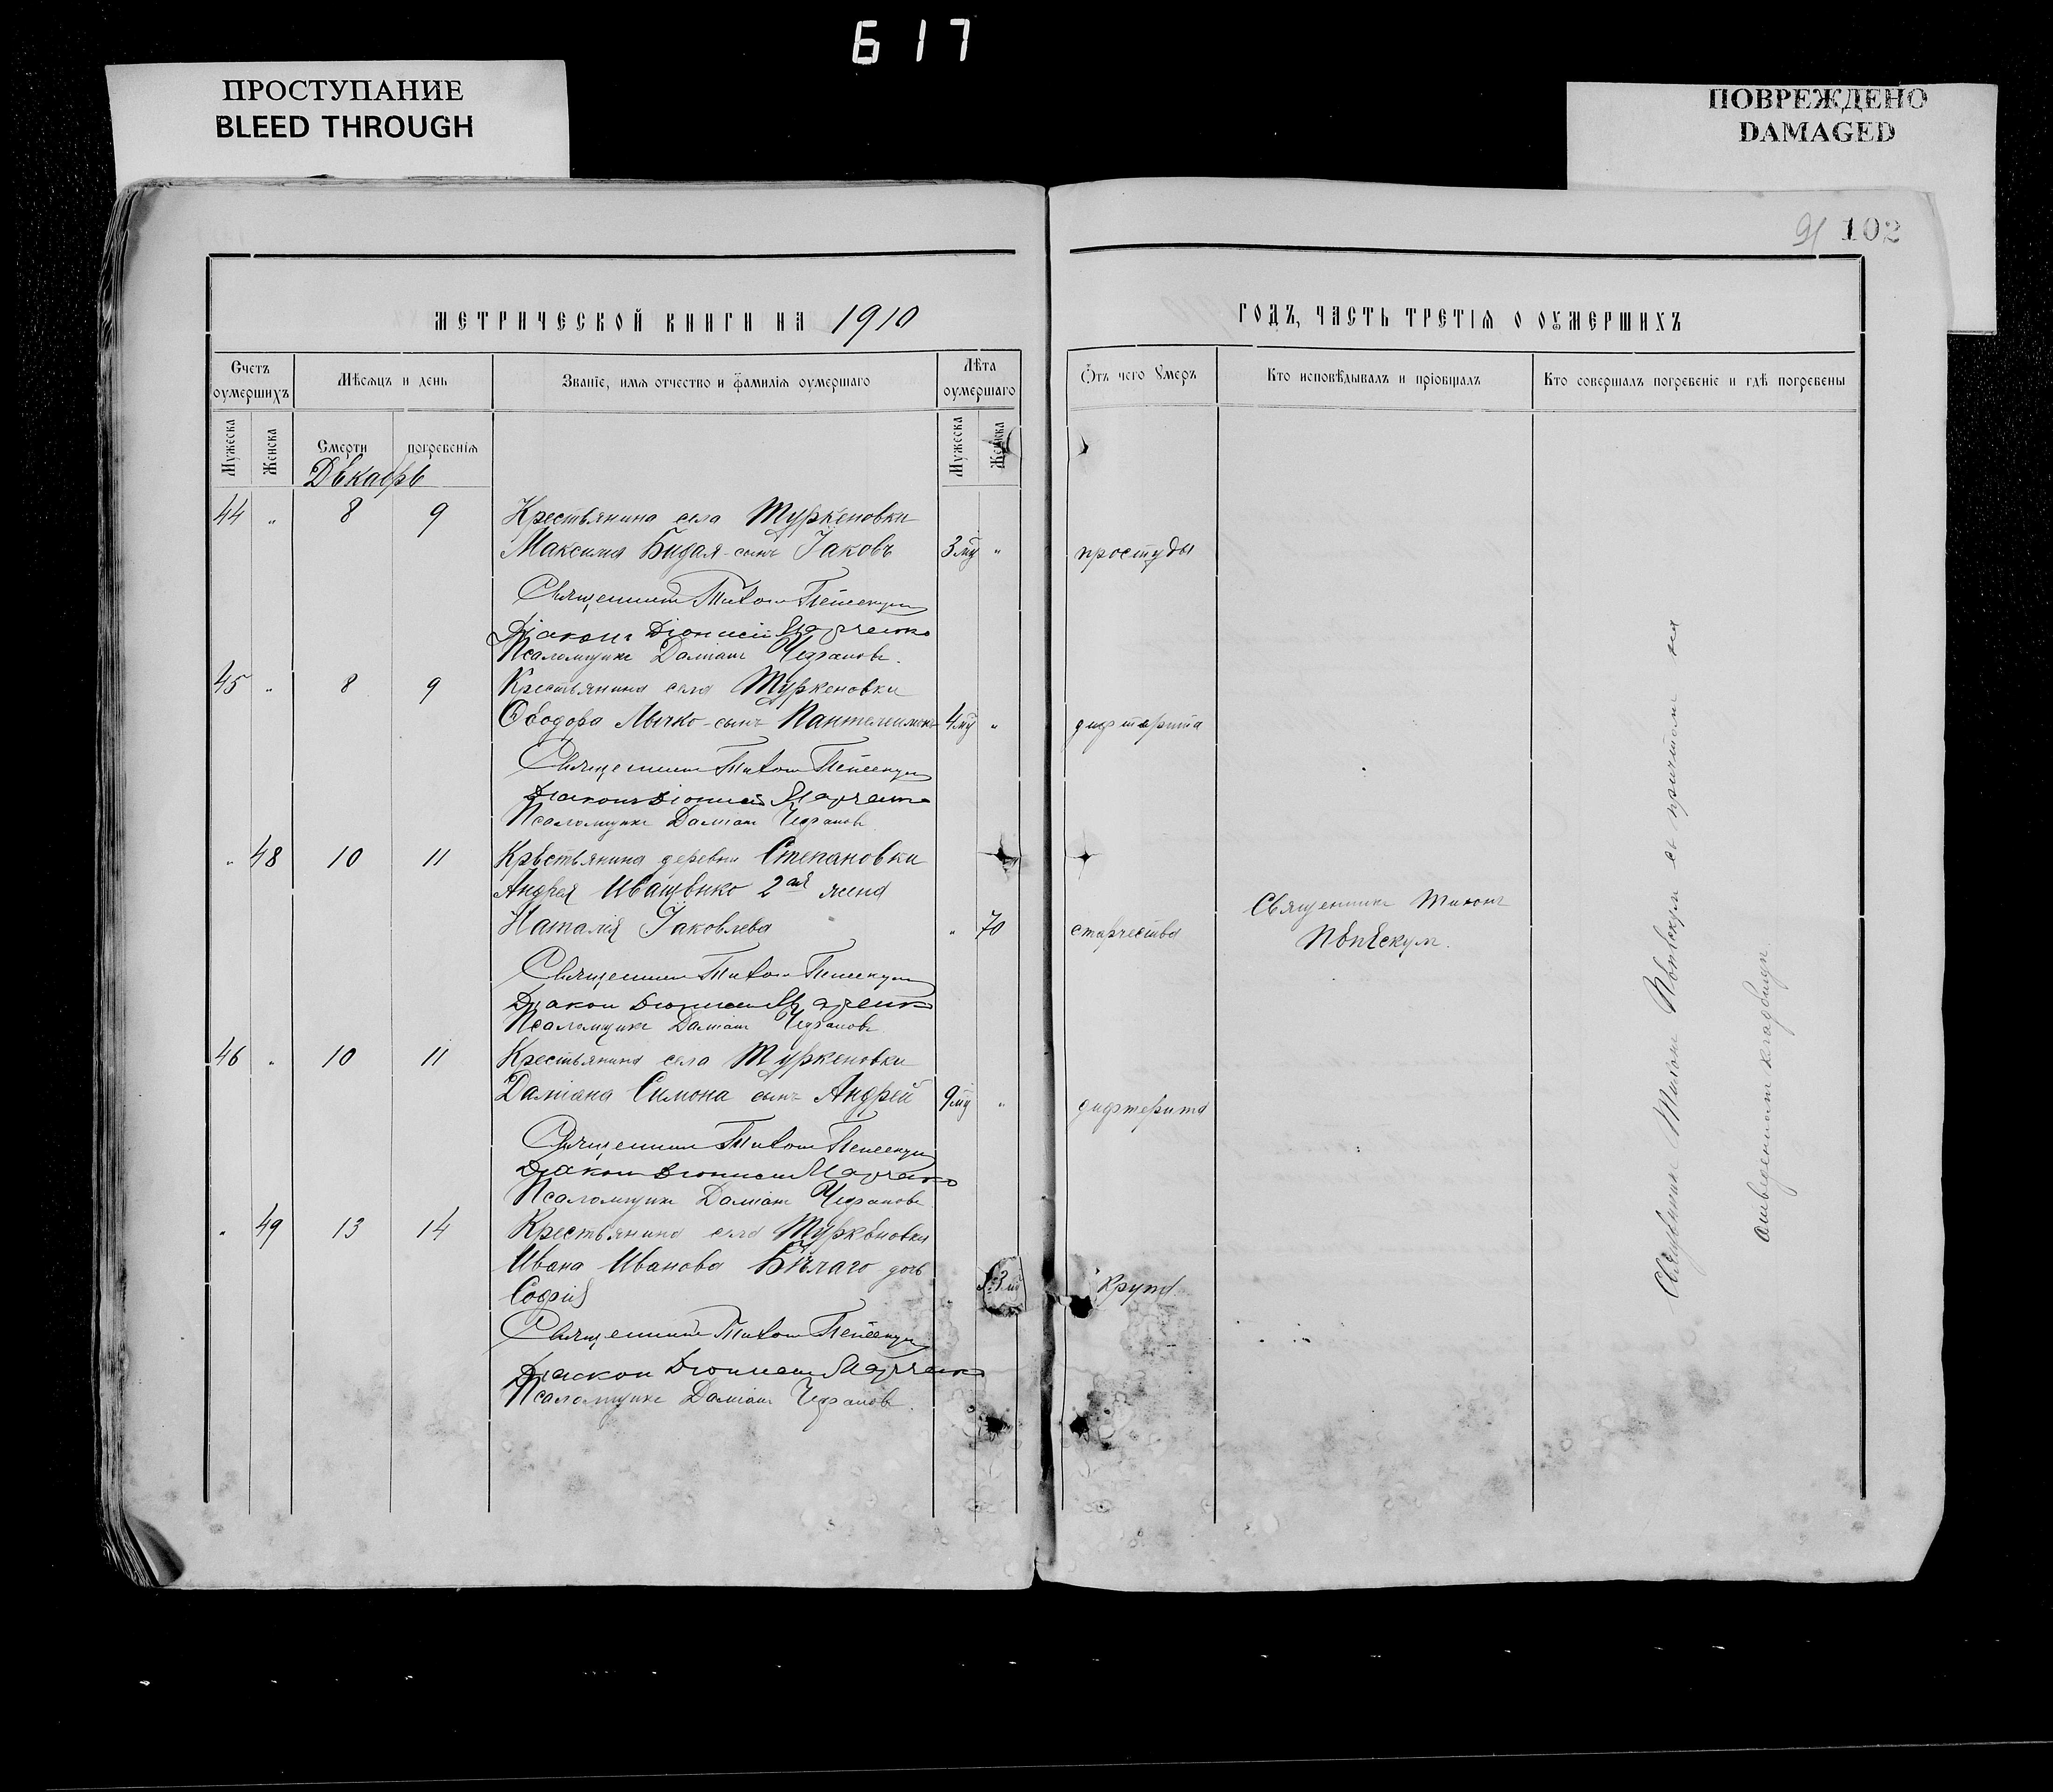 617
ПРОСТУПАНИЕ
BLEED THROUGH
ПОВРЕЖДЕНО
DAMAGED
91 102
МЕТРИЧЕСКОЙ КНИГИ НА 1910
ГОДЪ, ЧАСТЬ ТРЕТІѦ О ОУМЕРШИХЪ
Счетъ оумершихъ
Мѣсяцъ и день
Званіе, имя отчество и фамилія оумершаго
Лѣта оумершаго
Отъ чего Умеръ
Кто исповѣдывалъ и пріобщалъ
Кто совершалъ погребеніе и гдѣ погребены
Мужеска Женска Смерти погребенія Мужеска Женска
Дѣкабрь
44 " 8 9 Крестьянина села Туркеновки
Максима Бидая сынъ Іаковъ 3 " простуды
Священникъ Тихонъ
Діаконъ Діонисій Марченко
Псаломщикъ Даміанъ
45 " 8 9 Крестьянина села Туркеновки
Ѳеодора Лычко сынъ Пантелеимонъ 4 " дифтерита
Священникъ Тихонъ
Діаконъ Діонисій Марченко
Псаломщикъ Даміанъ
" 48 10 11 Крѣстьянина деревни Степановки
Андрея Иващѣнко 2ая жена
Наталія Іаковлева " 70 старчества
Священникъ Тихонъ
Пѣпѣскулъ.
Священникъ Тихонъ
Діаконъ Діонисій Марченко
Псаломщикъ Даміанъ
46 " 10 11 Крестьянина села Туркеновки
Даміана Симона сынъ Андрей 9 " дифтерита
Священникъ Тихонъ
Діаконъ Діонисій Марченко
Псаломщикъ Даміанъ
" 49 13 14 Крестьянина села Туркѣновки
Ивана Иванова Бѣлаго дочь
Софія " крупа
Священникъ Тихонъ
Діаконъ Діонисій Марченко
Псаломщикъ Даміанъ
Священникъ Тихонъ Пѣпѣскулъ съ причтомъ на
отвѣденномъ кладбищѣ